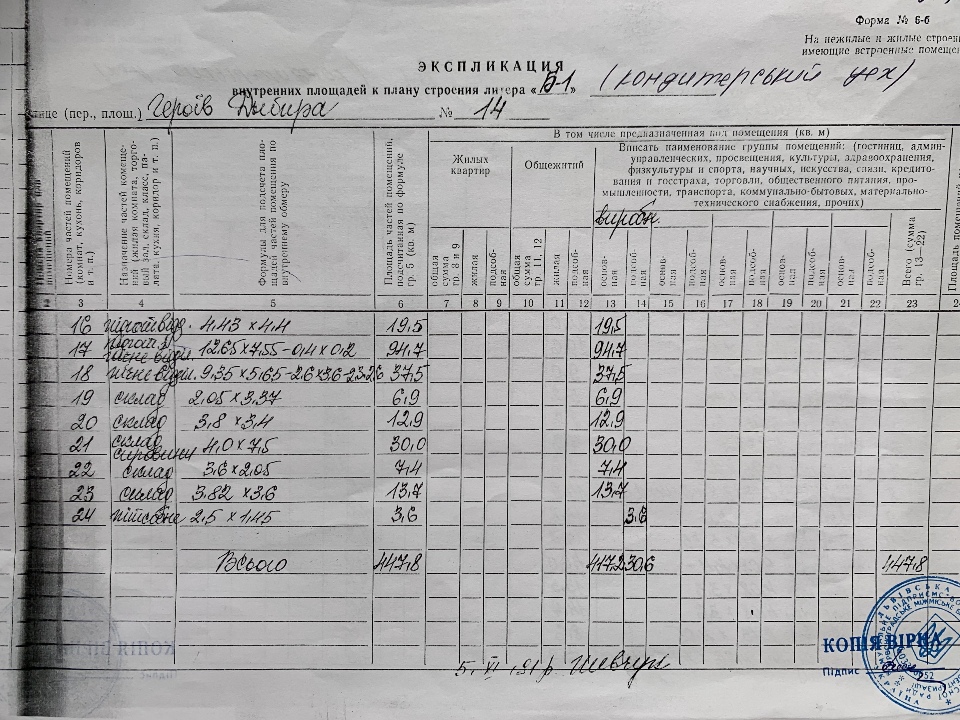 Форма № 6-б
На нежилые и жилые строен
имеющие встроенные помещен
ЭКСПЛИКАЦИЯ
внутренних площадей к плану строения литера «Б-1» (кондитерський цех)
лице (пер., площ.) Героїв № 14
Номера частей помещений (комнат, кухонь, коридоров и т. п.)
Назначение частей помещений (жилая комната, торговый зал, склад, класс, палата, кухня, коридор и т. п.)
Формулы для подсчета площадей частей помещения по внутреннему обмеру
Площадь частей помещений, подсчитанная по формуле гр. 5 (кв. м)
В том числе предназначенная под помещения (кв. м)
Жилых квартир
Общежитий
Вписать наименование группы помещений: (гостиниц, админ-
управленческих, просвещения, культуры, здравоохранения,
физкультуры и спорта, научных, искусства, связи, кредито-
вания и госстраха, торговли, общественного питания, про-
мышленности, транспорта, коммунально-бытовых, материально-
технического снабжения, прочих)
виробн.
общая сумма гр 8 и 9 жилая подсоб-ная общая сумма гр 11, 12 жилая подсоб-ная основ-ная подсоб-ная основ-ная подсоб-ная основ-ная подсоб-ная основ-ная подсоб-ная основ-ная подсоб-ная Всего (сумма гр. 13—22)
Площадь помещений
3 4 5 6 7 8 9 10 11 12 13 14 15 16 17 18 19 20 21 22 23
16 4,43 × 4,4 19,5 19,5
17 12,65 × 7,55 - 0,4 × 0,2 94,7 94,7
18 9,35 × 5,65 - 2,6 × 3,6 - 37,5 37,5
19 склад 2,05 × 3,37 6,9 6,9
20 склад 3,8 × 3,4 12,9 12,9
21 склад сировини 4,0 × 7,5 30,0 30,0
22 склад 3,6 × 2,05 7,4 7,4
23 склад 3,82 × 3,6 13,7 13,7
24 підсобне 2,5 × 1,45 3,6 3,6
Всього 447,8 417,2 30,6 447,8
КОПІЯ ВІРНА
Підпис
5. VI .91 р